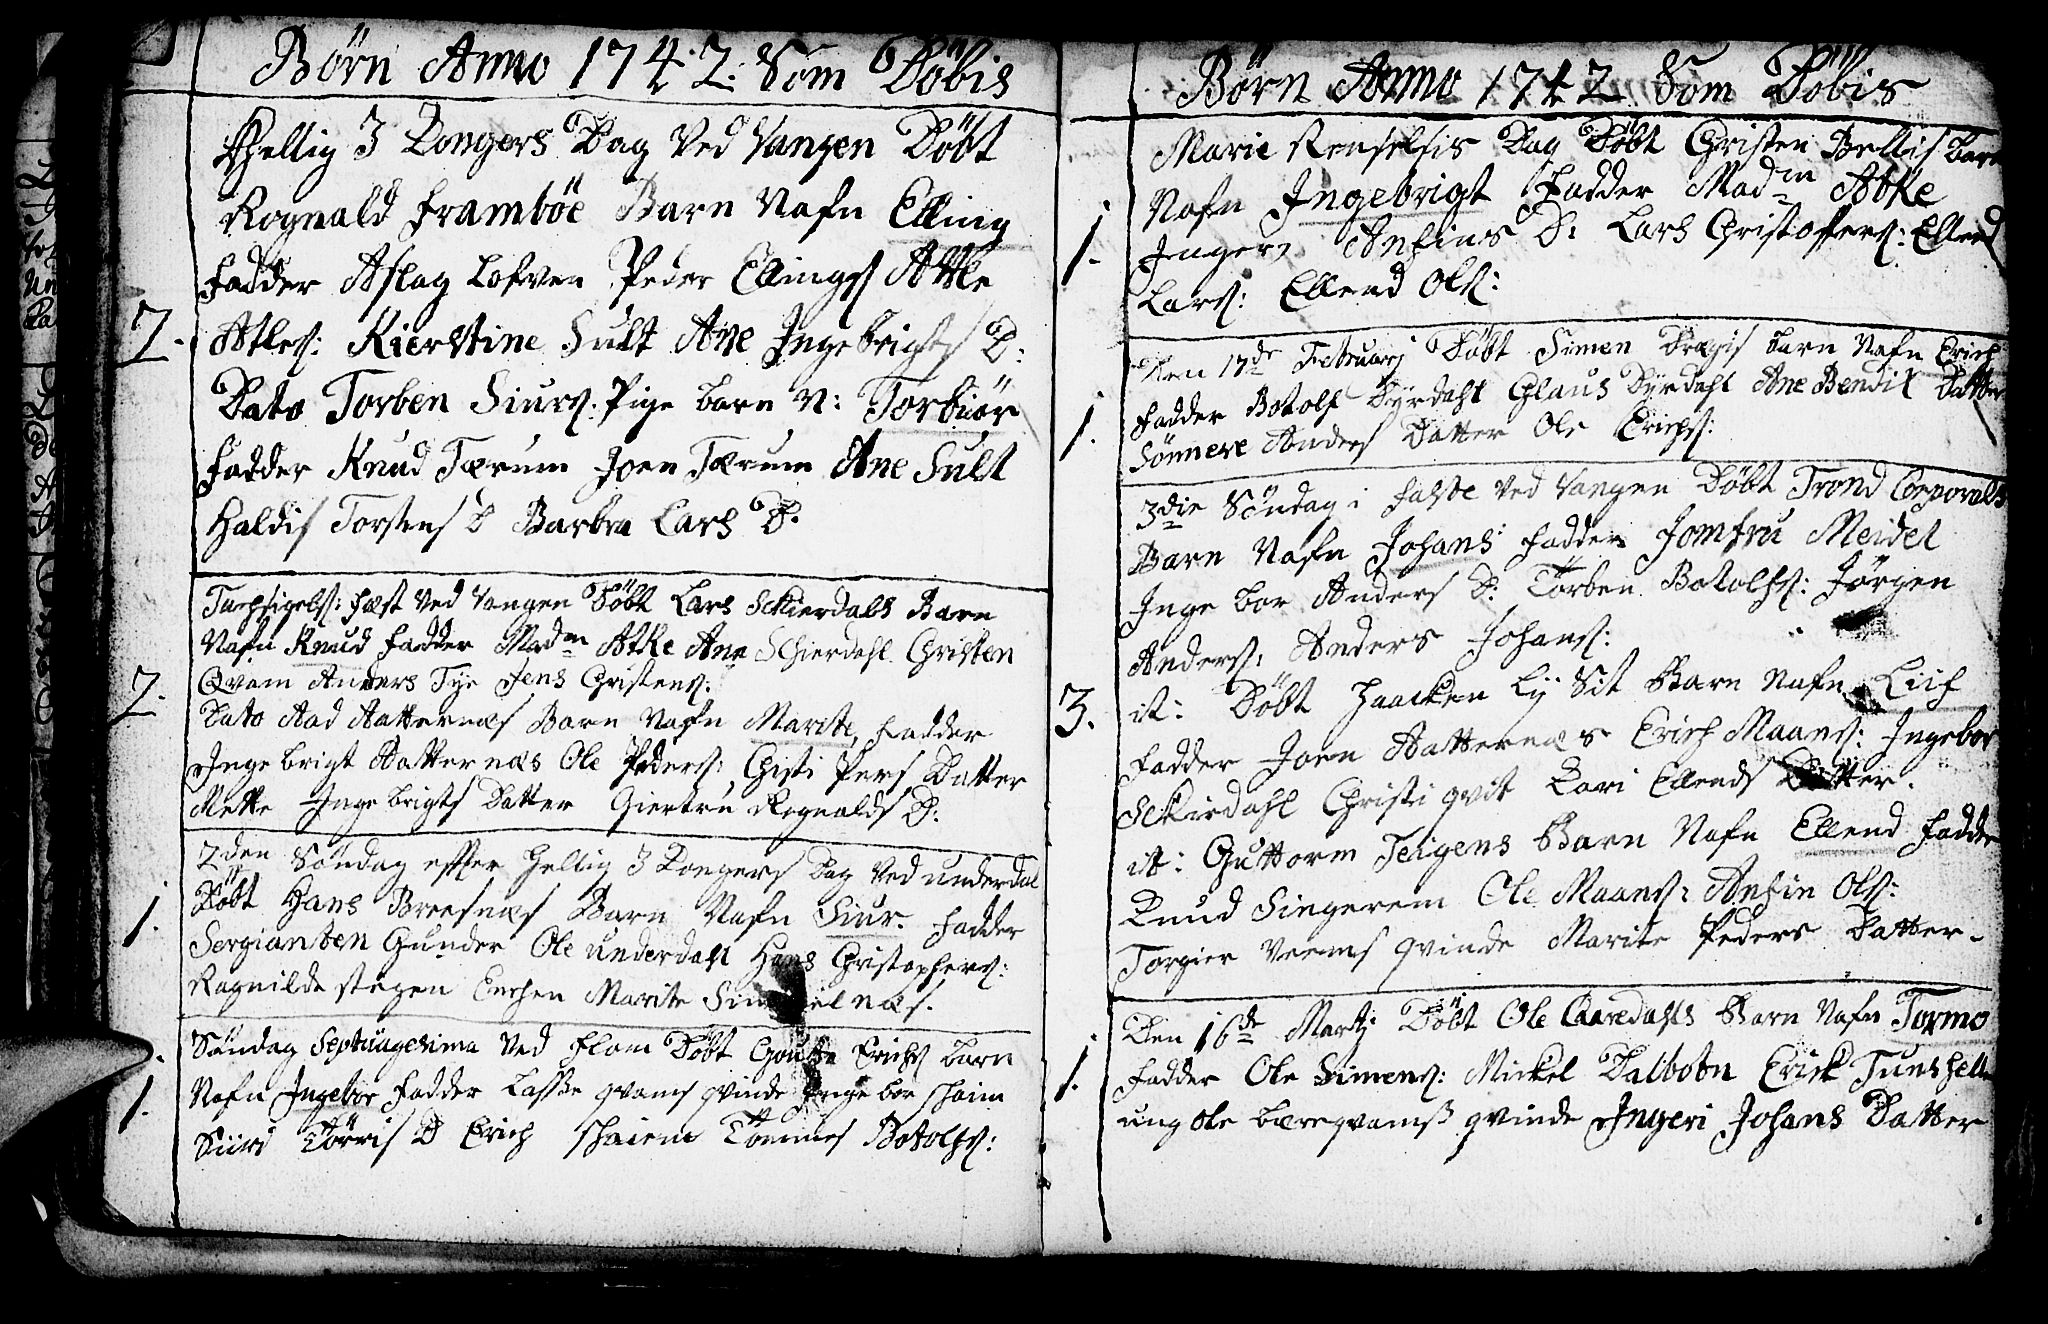 Börn Anno 1742: Som Döbis
Hellig 3 Kongers Dag Ved Vangen Döbt
Rognald Framböe Barn Nafn Elling
Fadder Aslag Lofven Peder Ellings Atle
2. Atles: Kierstine Sult Ane Ingebrigts D:
Dato Torben Siurs: Pige barn N: Torbiör
Fadder Knud Tærum Joen Tærum Ane Sult
Haldis Torstens D Barbra Lars D.
fæst Ved Vangen Döbt Lars Schierdals Barn
Nafn Knud Fadder Madm Atke Ane Schierdahl Christen
2. Qvam Anders Tye Jens Christens:
Dato Aad Aatternæs Barn Nafn Marite, Fadder
Ingebrigt Aatternæs Ole Peders: Christi Pers Datter
Mette Ingebrigts Datter Giertru Rognalds D:
2den Söndag effter Hellig 3 Kongers Dag Ved underdal
1. Döbt Hans Breesnæs Barn Nafn Siur. Fadder
Sergianten Gunder Ole underdahl Hans Christophers:
Ragnilde stegen Marite
Söndag Septuagesima Ved Flam Döbt Goutte Erichs barn
1. Nafn Ingebor Fadder Lasse qvams qvinde Ingebor
Siiri Törris D Erich Tommes Botolfs:
Börn Anno 1742 Som Döbis
Marie Renselsis Dag Döbt Christen Bellis barn
1. Nafn Ingebrigt Fadder Madm Atke
Ingeri Anfins D: Lars Christoffers: Ellend
Lars: Ellend Ols:
Den 17de Februarj Döbt Simen barn Nafn Erich
1. Fadder Botolf Dyrdahl Claus Dyrdahl Ane Bendix Datter
Sönneve Anders Datter Ole Erichs:
3die Söndag i Faste Ved Vangen Döbt Trond Corporals
Barn Nafn Johans Fadder Jomfru Meidel
Ingebor Anders D: Torben Botolfs: Jörgen
Anders: Anders Johans:
3. it: Döbt Haacken Ly Sit Barn Nafn Liif
Fadder Joen Aatternæs Erich Maans: Ingebor
Schirdahl Christi qvit Kari Ellends Datter.
it: Guttorm Teigens Barn Nafn Ellend Fadder
Knud Singerem Ole Maans: Anfin Ols:
Torgier Veems qvinde Marite Peders Datter.
Den 16de Martj Döbt Ole Aaredahls Barn Nafn Tormo
1. Fadder Ole Simens: Mickel Dalbotn Erick Tunshelle
ung Ole bæreqvamß qvinde Ingeri Johans Datter